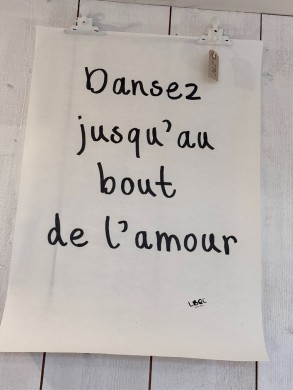 Dansez
jusqu'au
bout
de l'amour